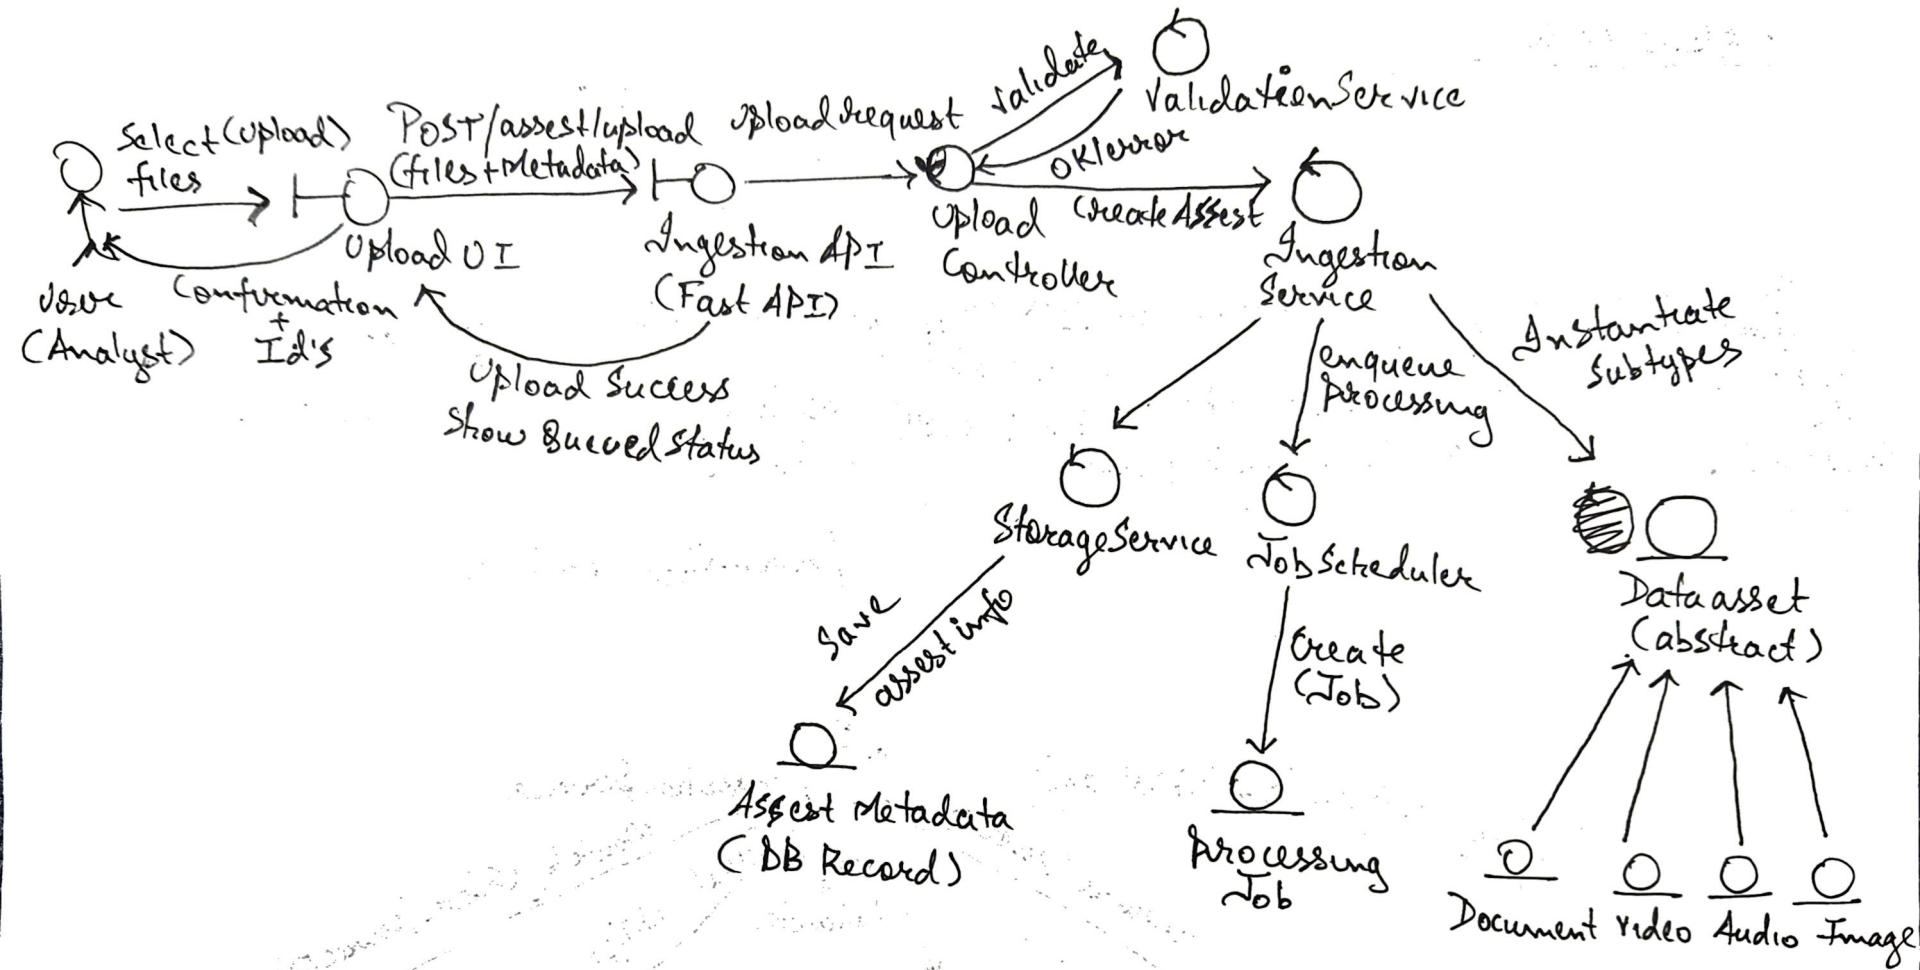 Select(Upload)
files
POST/assest/upload
(files+Metadata)
Upload request
Validate
ValidationService
OK/error
User
(Analyst)
Confirmation
+
Id's
Upload UI
Ingestion API
(Fast API)
Upload
Controller
Create Assest
Ingestion
Service
Upload Success
Show Queued Status
enqueue
Processing
Instantiate
Subtypes
StorageService
JobScheduler
Data asset
(abstract)
Save
assest info
Create
(Job)
Assest Metadata
(DB Record)
Processing
Job
Document
Video
Audio
Image